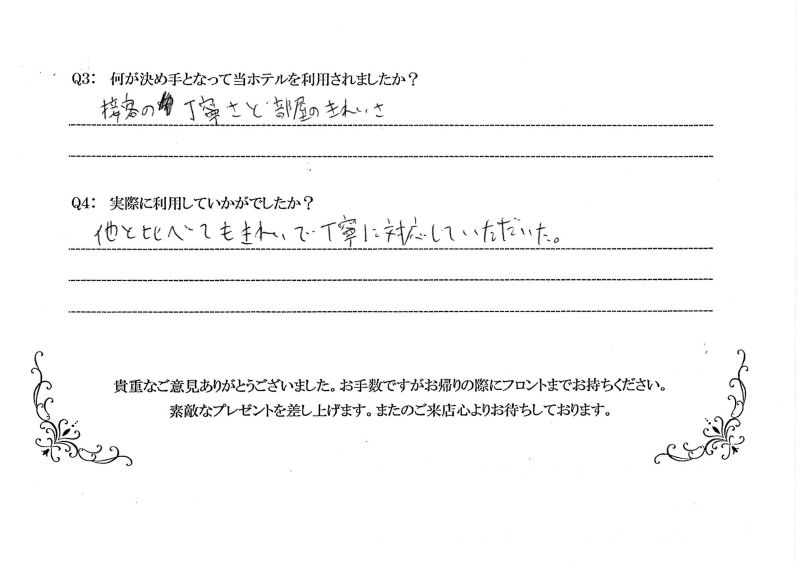 Q3： 何が決め手となって当ホテルを利用されましたか？
接客の丁寧さと部屋のきれいさ
Q4： 実際に利用していかがでしたか？
他と比べてもきれいで丁寧に対応していただいた。
貴重なご意見ありがとうございました。お手数ですがお帰りの際にフロントまでお持ちください。
素敵なプレゼントを差し上げます。またのご来店心よりお待ちしております。